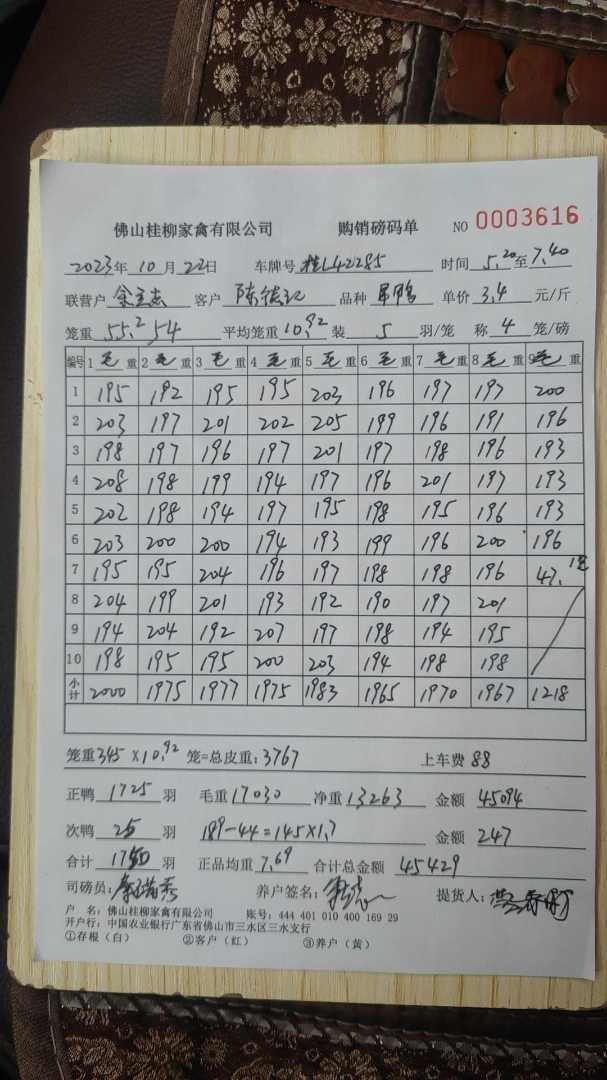 佛山桂柳家禽有限公司 购销磅码单 NO 0003616
2023年 10月 22日 车牌号 桂L42285 时间 5.20至7.40
联营户 客户 陈 品种 鸭 单价 3.4 元/斤
笼重 55.2 54 平均笼重 10.92 装 5 羽/笼 称 4 笼/磅
编号 1 毛 重 2 毛 重 3 毛 重 4 毛 重 5 毛 重 6 毛 重 7 毛 重 8 毛 重 9 毛 重
1 195 192 195 195 203 196 197 197 200
2 203 197 201 202 205 199 196 191 196
3 198 197 196 197 201 197 198 196 193
4 208 198 199 194 197 196 201 197 193
5 202 198 194 197 195 198 195 196 193
6 203 200 200 194 193 199 196 200 196
7 195 195 204 196 197 198 198 196 47.
8 204 199 201 193 192 190 197 201
9 194 204 192 207 197 198 194 195
10 198 195 195 200 203 194 198 198
小计 2000 1975 1977 1975 1983 1965 1970 1967 1218
笼重 345 X 10.92 笼=总皮重: 3767 上车费 88
正鸭 1725 羽 毛重 17030 净重 13263 金额 45094
次鸭 25 羽 189-44=145X1.7 金额 247
合计 1750 羽 正品均重 7.69 合计总金额 45429
司磅员: 养户签名: 提货人:
户 名: 佛山桂柳家禽有限公司 账号: 444 401 010 400 169 29
开户行: 中国农业银行广东省佛山市三水区三水支行
①存根（白） ②客户（红） ③养户（黄）